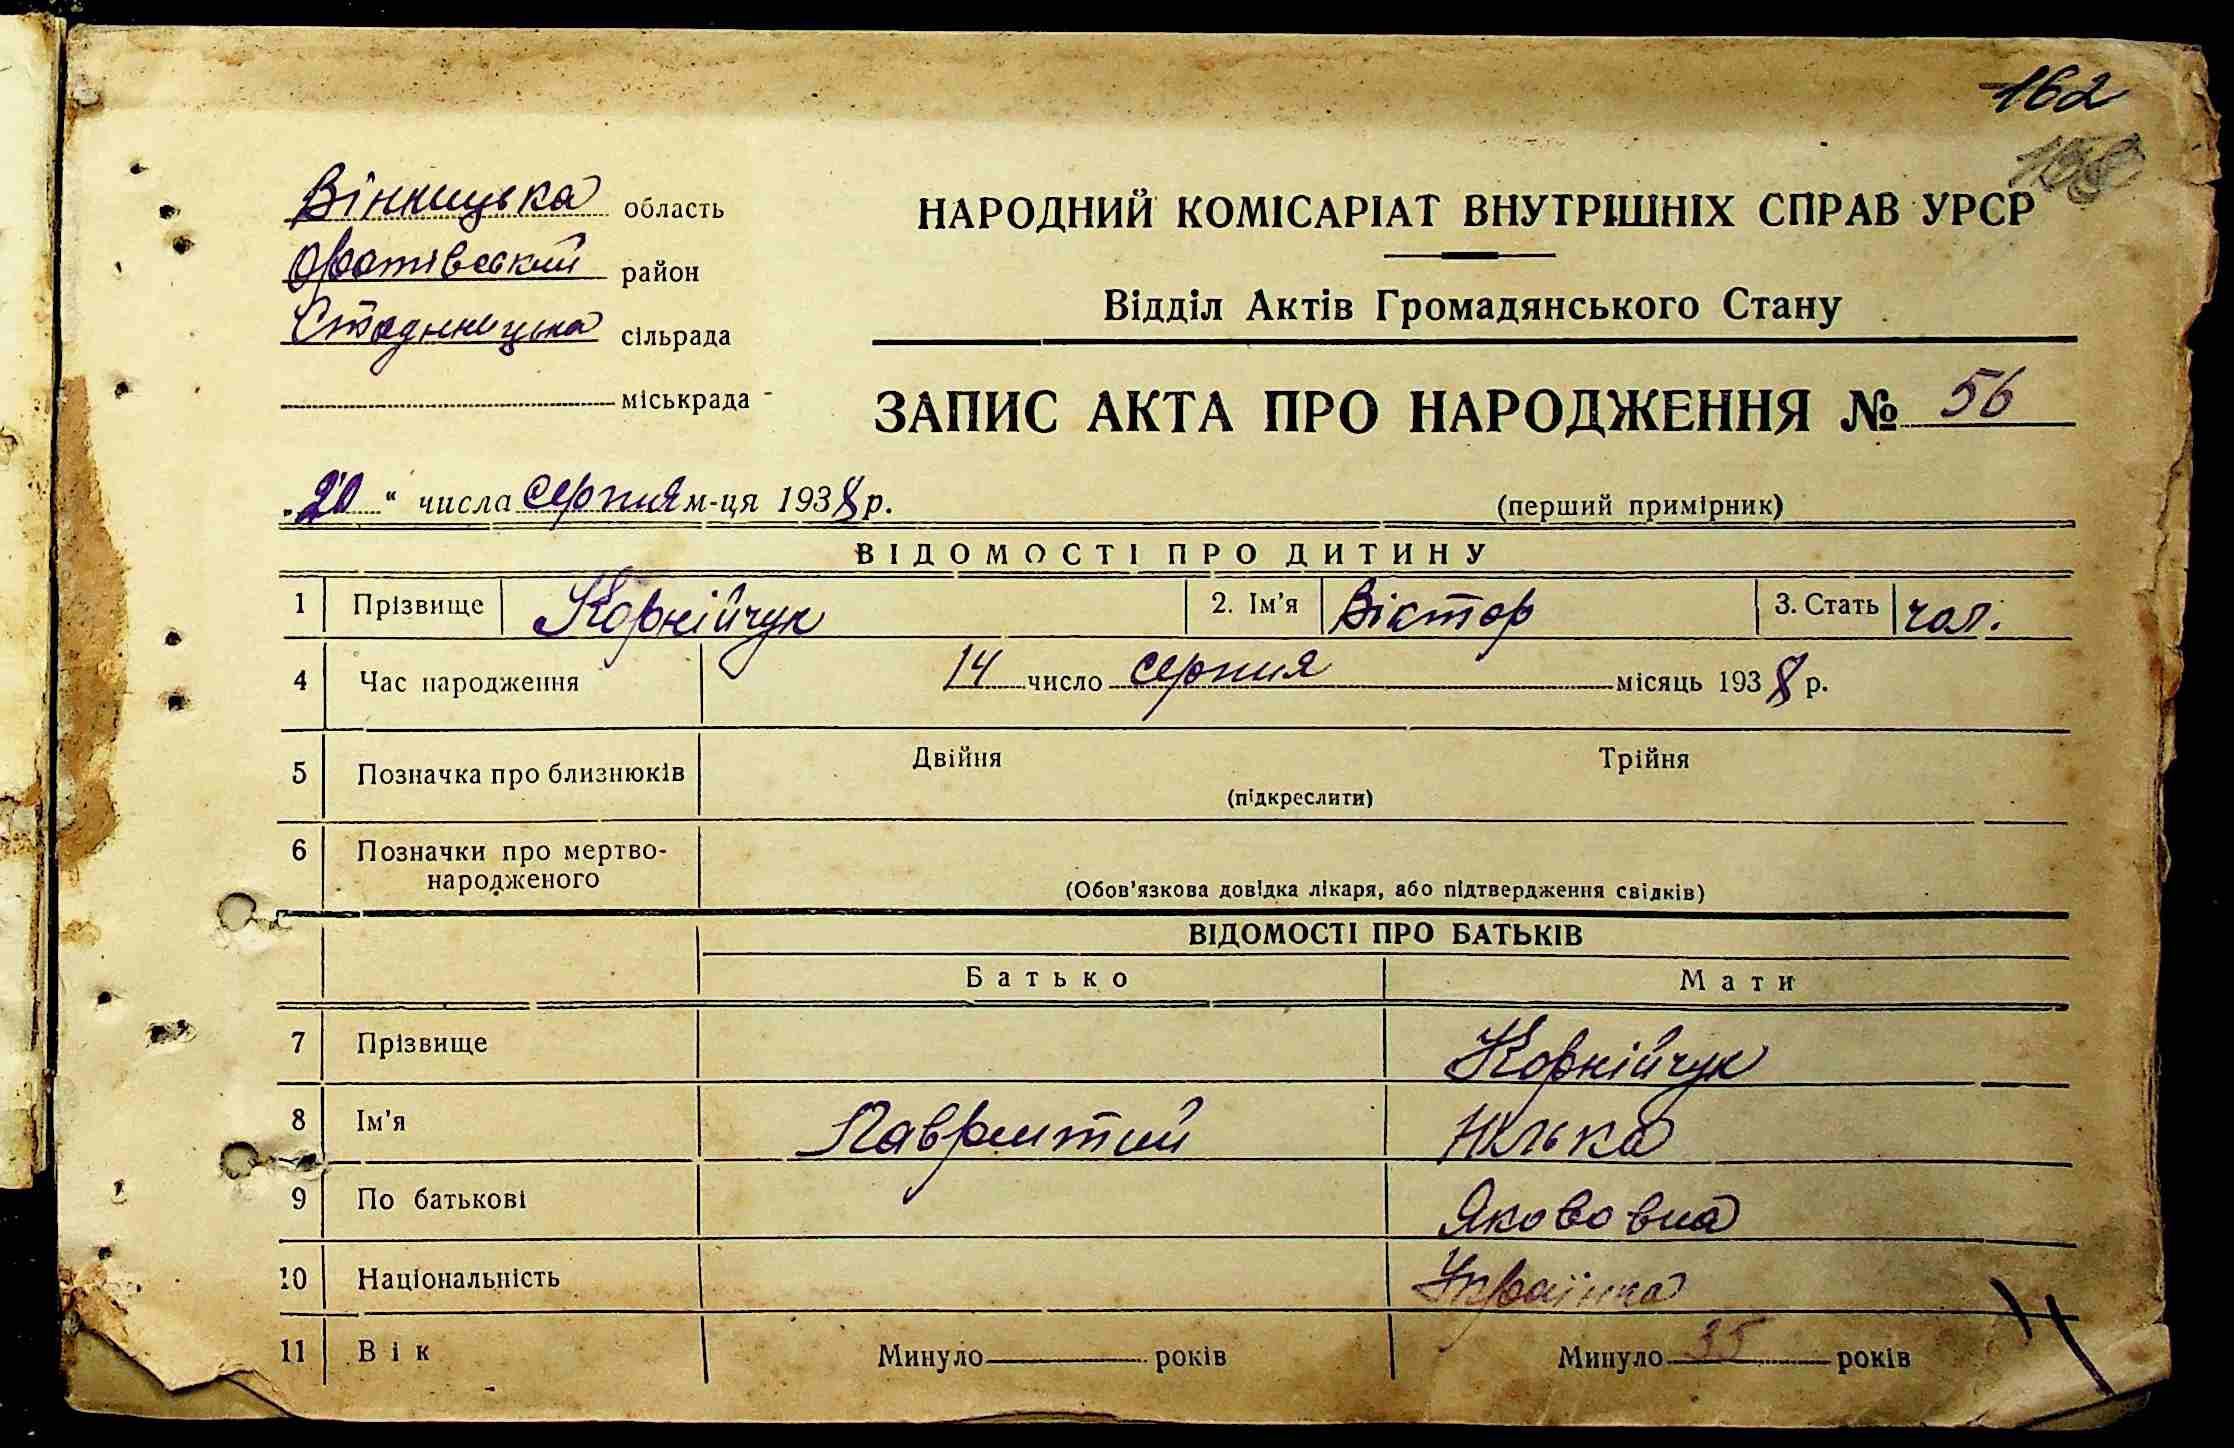 162
Вінницька область
НАРОДНИЙ КОМІСАРІАТ ВНУТРІШНІХ СПРАВ УРСР
Оратівський район
Відділ Актів Громадянського Стану
Стадницька сільрада
міськрада
ЗАПИС АКТА ПРО НАРОДЖЕННЯ № 56
„20“ числа серпня м-ця 1938 р.
(перший примірник)
ВІДОМОСТІ ПРО ДИТИНУ
1 Прізвище Корнійчук 2. Ім'я Віктор 3. Стать чол.
4 Час народження 14 число серпня місяць 1938 р.
5 Позначка про близнюків Двійня Трійня
(підкреслити)
6 Позначки про мертво-
народженого
(Обов'язкова довідка лікаря, або підтвердження свідків)
ВІДОМОСТІ ПРО БАТЬКІВ
Батько Мати
7 Прізвище Корнійчук
8 Ім'я Лаврентій
9 По батькові Якововна
10 Національність Українка
11 Вік Минуло років Минуло 35 років